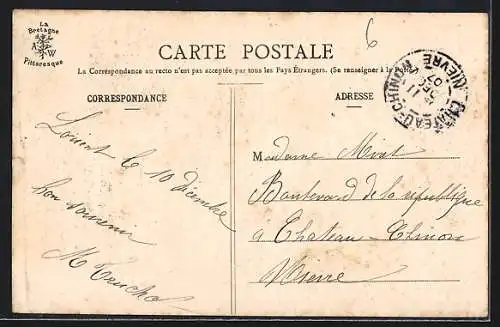 La
Bretagne
A W
Pittoresque
6
CARTE POSTALE
La Correspondance au recto n'est pas acceptée par tous les Pays Étrangers. (Se renseigner à la Poste)
CORRESPONDANCE
ADRESSE
CHATEAU-CHINON
11
DEC
07
NIEVRE
Lorient le 10 décembre
bon souvenir
M
Madame
Boulevard de la république
a Chateau-Chinon
Nievre